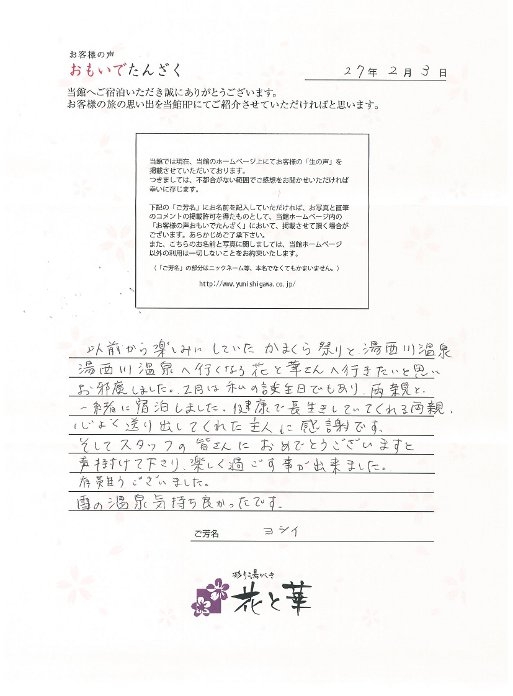 お客様の声
おもいでたんざく
27年 2月 3日
当館へご宿泊いただき誠にありがとうございます。
お客様の旅の思い出を当館HPにてご紹介させていただければと思います。
当館では現在、当館のホームページ上にてお客様の「生の声」を
掲載させていただいております。
つきましては、不都合がない範囲でご感想をお聞かせいただければ
幸いに存じます。
下記の「ご芳名」にお名前を記入していただければ、お写真と直筆
のコメントの掲載許可を得たものとして、当館ホームページ内の
「お客様の声おもいでたんざく」において、掲載させて頂く場合が
ございます。あらかじめご了承下さい。
また、こちらのお名前と写真に関しましては、当館ホームページ
以外の利用は一切しないことをお約束いたします。
(「ご芳名」の部分はニックネーム等、本名でなくてもかまいません。)
http://www.yunishigawa.co.jp/
以前から楽しみにしていた かまくら祭りと 湯西川温泉
湯西川温泉へ行くなら 花と華さんへ行きたいと思い
お邪魔しました。2月は私の誕生日でもあり、両親と
一緒に宿泊しました。健康で長生きしていてくれる両親、
心よく送り出してくれた主人に感謝です。
そしてスタッフの皆さんに おめでとうございますと
声掛けて下さり、楽しく過ごす事が出来ました。
有難うございました。
雪の温泉気持ち良かったです。
ご芳名 ヨシイ
彩り湯かしき
花と華